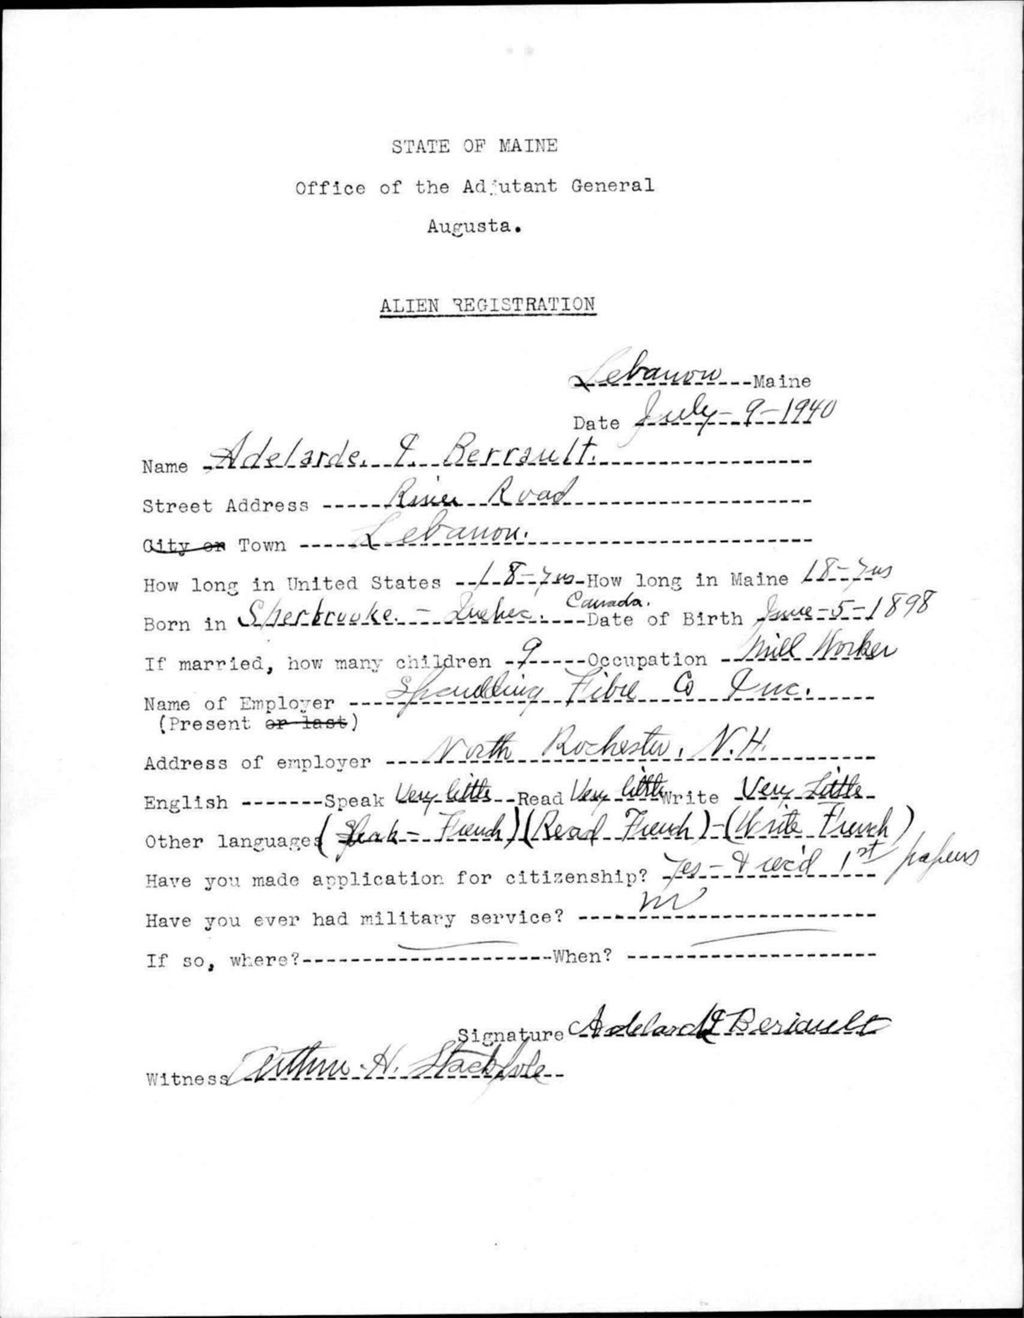 STATE OF MAINE
Office of the Adjutant General
Augusta.
ALIEN REGISTRATION
Lebanon Maine
Date July-9-1940
Name Adelarde. I. Berrault.
Street Address River Road
City or Town Lebanon.
How long in United States 18-yrs How long in Maine 18-yrs
Born in Sherbrooke. - Quebec. Canada. Date of Birth June-5-1898
If married, how many children 9 Occupation Mill Worker
Name of Employer Spaulding Fibre Co Inc.
(Present or last)
Address of employer North Rochester, N.H.
English Speak Very little Read Very little Write Very Little
Other languages (Speak- French) (Read French)-(Write French)
Have you made application for citizenship? Yes- & rec'd 1st papers
Have you ever had military service? no
If so, where? When?
Signature Adelard I Beriault
Witness Arthur H. Stackpole